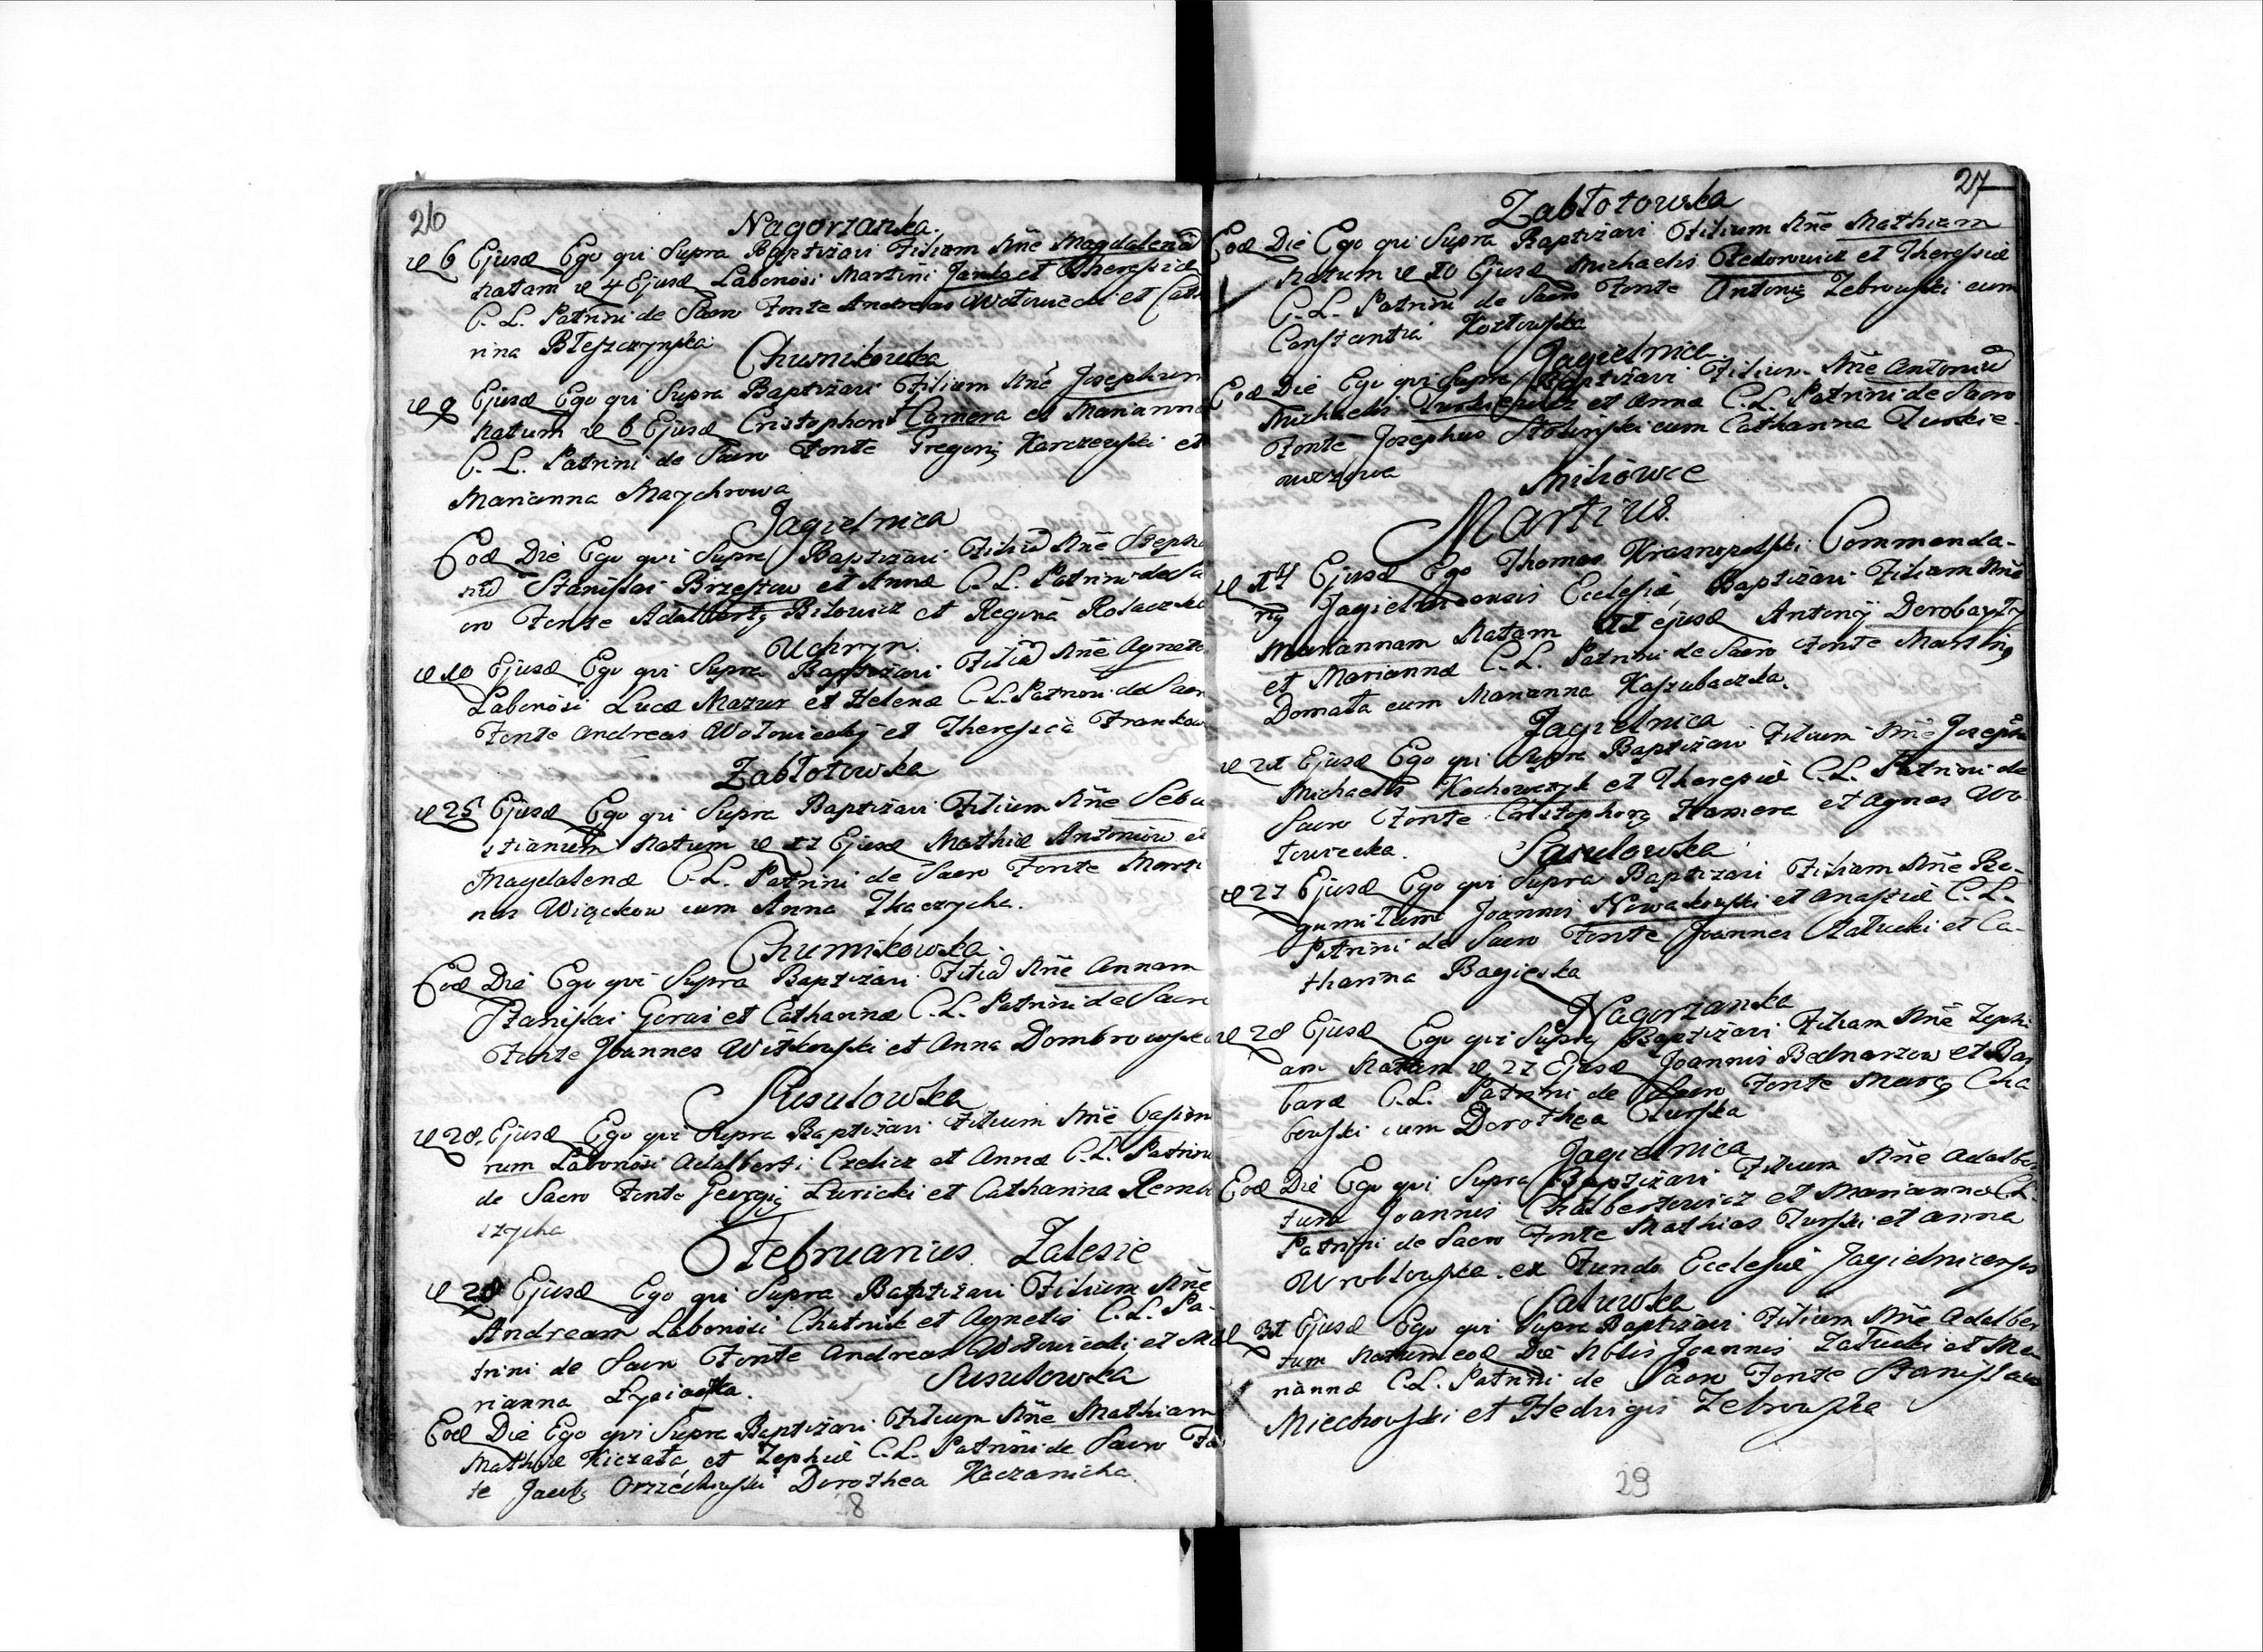 26
Nagorzanka.
d 6 Ejusd Ego qui Supra Baptizavi Filiam Nñe Magdalenã
natam d 4 Ejusd Laboriosi Martini Janka et Theresiæ
C. L. Patrini de Sacro Fonte Andreas Wołowiecki et Catha
rina Błeszczynska
Chumikowka
d 9 Ejusd Ego qui Supra Baptizavi Filium Nñe Josephum
Natum d 6 Ejusd Cristophori Comera et Marianna
C. L. Patrini de Sacro Fonte Gregorij Karczewski et
Marianna Maychrowa
Jagielnica
Eod Die Ego qui Supra Baptizavi Filiũ Nñe Stepha
nũ Stanislai Brzestaw et Annæ C. L. Patrini de Sa
cro Fonte Adalbertq Bilowicz et Regina
Uchryn.
d 10 Ejusd Ego qui Supra Baptizavi Filiã Nñe Agnete
Laboriosi Lucæ Mazur et Helenæ C. L. Patrini de Sacr
Fonte Andreas Wołowiecky et Theresia Frankow
Zabłotowka
d 25 Ejusd Ego qui Supra Baptizavi Filium Nñe Seba
stianum Natum d 21 Ejusd Mathiæ Antoniow et
Magdalenæ C. L. Patrini de Sacro Fonte Marti
nus Wiąckow cum Anna Tkaczycha.
Chumikowka
Eod Die Ego qui Supra Baptizavi Filiã Nñe Annam
Stanislai Goras et Catharinæ C. L. Patrini de Sacro
Fonte Joannes Witkowski et Anna Dombrowska
Susulowka
d 28. Ejusd Ego qui Supra Baptizavi Filium Nñe Casim
rum Laboriosi Adalberti Czelicz et Annæ C. L. Patrini
de Sacro Fonte Georgiq Luricki et Catharina Rema
szycha
Februarius. Zalesie
d 28 Ejusd Ego qui Supra Baptizavi Filium Nñe
Andream Laboriosi Chatnik et Agnetis C. L. Pa-
trini de Sacro Fonte Andreas Wołowiecki et Ma
rianna
Susulowka
Eod Die Ego qui Supra Baptizavi Filium Nñe Mathiam
Mathiæ Kiczata et Zophiæ C. L. Patrini de Sacro Fo
te Jacobq Orzechowski Dorothea Kaczanicha.
8
27
Zabłotowka
Eod Die Ego qui Supra Baptizavi Filium Nñe Mathiam
Natum d 20 Ejusd Michaelis Fedorowicz et Theresiæ
C. L. Patrini de Sacro Fonte Antoniq Zebrowski cum
Constantia Kozłowska
Jagielnica
Eod Die Ego qui Supra Baptizavi Filium Nñe Antoniũ
Michaelis Turkiewicz et Annæ C. L. Patrini de Sacro
Fonte Josephus Stolinski cum Catharina Turkie-
wiczowa
Milowce
Martius.
d 14 Ejusd Ego Thomas Krasnopolski Commenda-
riq Jagielnicensis Eclesiæ Baptizavi Filiam Nñe
Mariannam Natam 11 ejusd Antonij Dorobayty
et Mariannæ C. L. Patrini de Sacro Fonte Martinq
Domata cum Marianna Kaszubaczka.
Jagielnica
d 21 Ejusd Ego qui Supra Baptizavi Filium Nñe Josephũ
Michaelis Kochowczyk et Theresiæ C. L. Patrini de
Sacro Fonte Cristophorq Kamera et Agnes Wo
łowiecka.
Susulowka
d 27 Ejusd Ego qui Supra Baptizavi Filiam Nñe Bo-
gumilam Joannis Nowakowski et Anastiæ C. L.
Patrini de Sacro Fonte Joannes Załucki et Ca-
tharina Bagieska
Nagorzanka
d 28 Ejusd Ego qui Supra Baptizavi Filiam Nñe Zophi
am Natam d 27 Ejusd Joannis Bednarzow et Bar
baræ C. L. Patrini de Sacro Fonte Marcq Cha
bowski cum Dorothea Turska
Jagielnica
Eod Die Ego qui Supra Baptizavi Filium Nñe Adalber
tum Joannis Chalbertowicz et Mariannæ C. L.
Patrini de Sacro Fonte Mathias Turski et Anna
Wroblowska ex Fundo Ecclesiæ Jagielnicensis
Satuwka
d 31 Ejusd Ego qui Supra Baptizavi Filium Nñe Adalber
tum Natum eod Die Nblis Joannis Załucki et Ma
riannæ C. L. Patrini de Sacro Fonte Stanislaus
Miechowski et Hedvigis Zebrowska
29